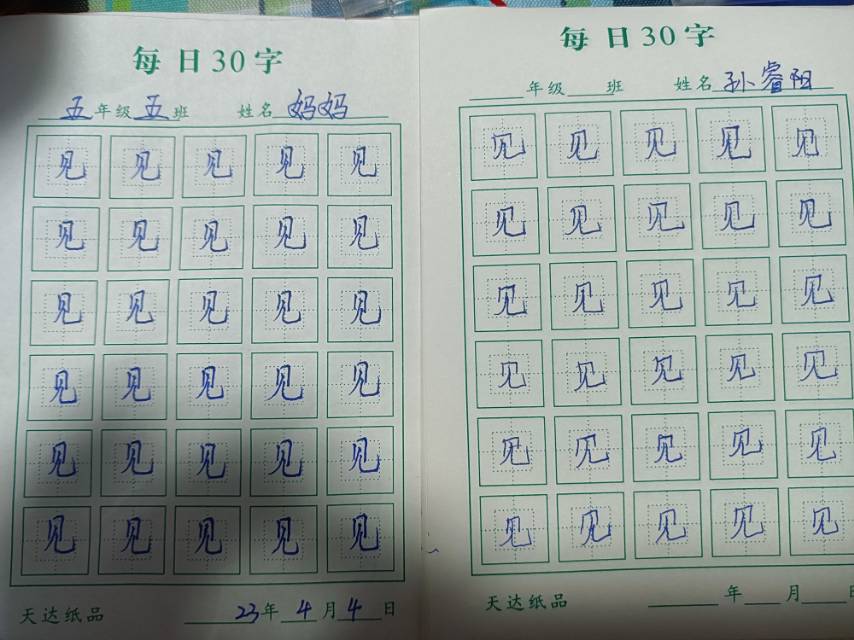 每日30字
五年级五班 姓名 妈妈
见见见见见
见见见见见
见见见见见
见见见见见
见见见见见
见见见见见
天达纸品 23年4月4日
每日30字
年级 班 姓名 孙睿阳
见见见见见
见见见见见
见见见见见
见见见见见
见见见见见
见见见见见
天达纸品 年 月 日